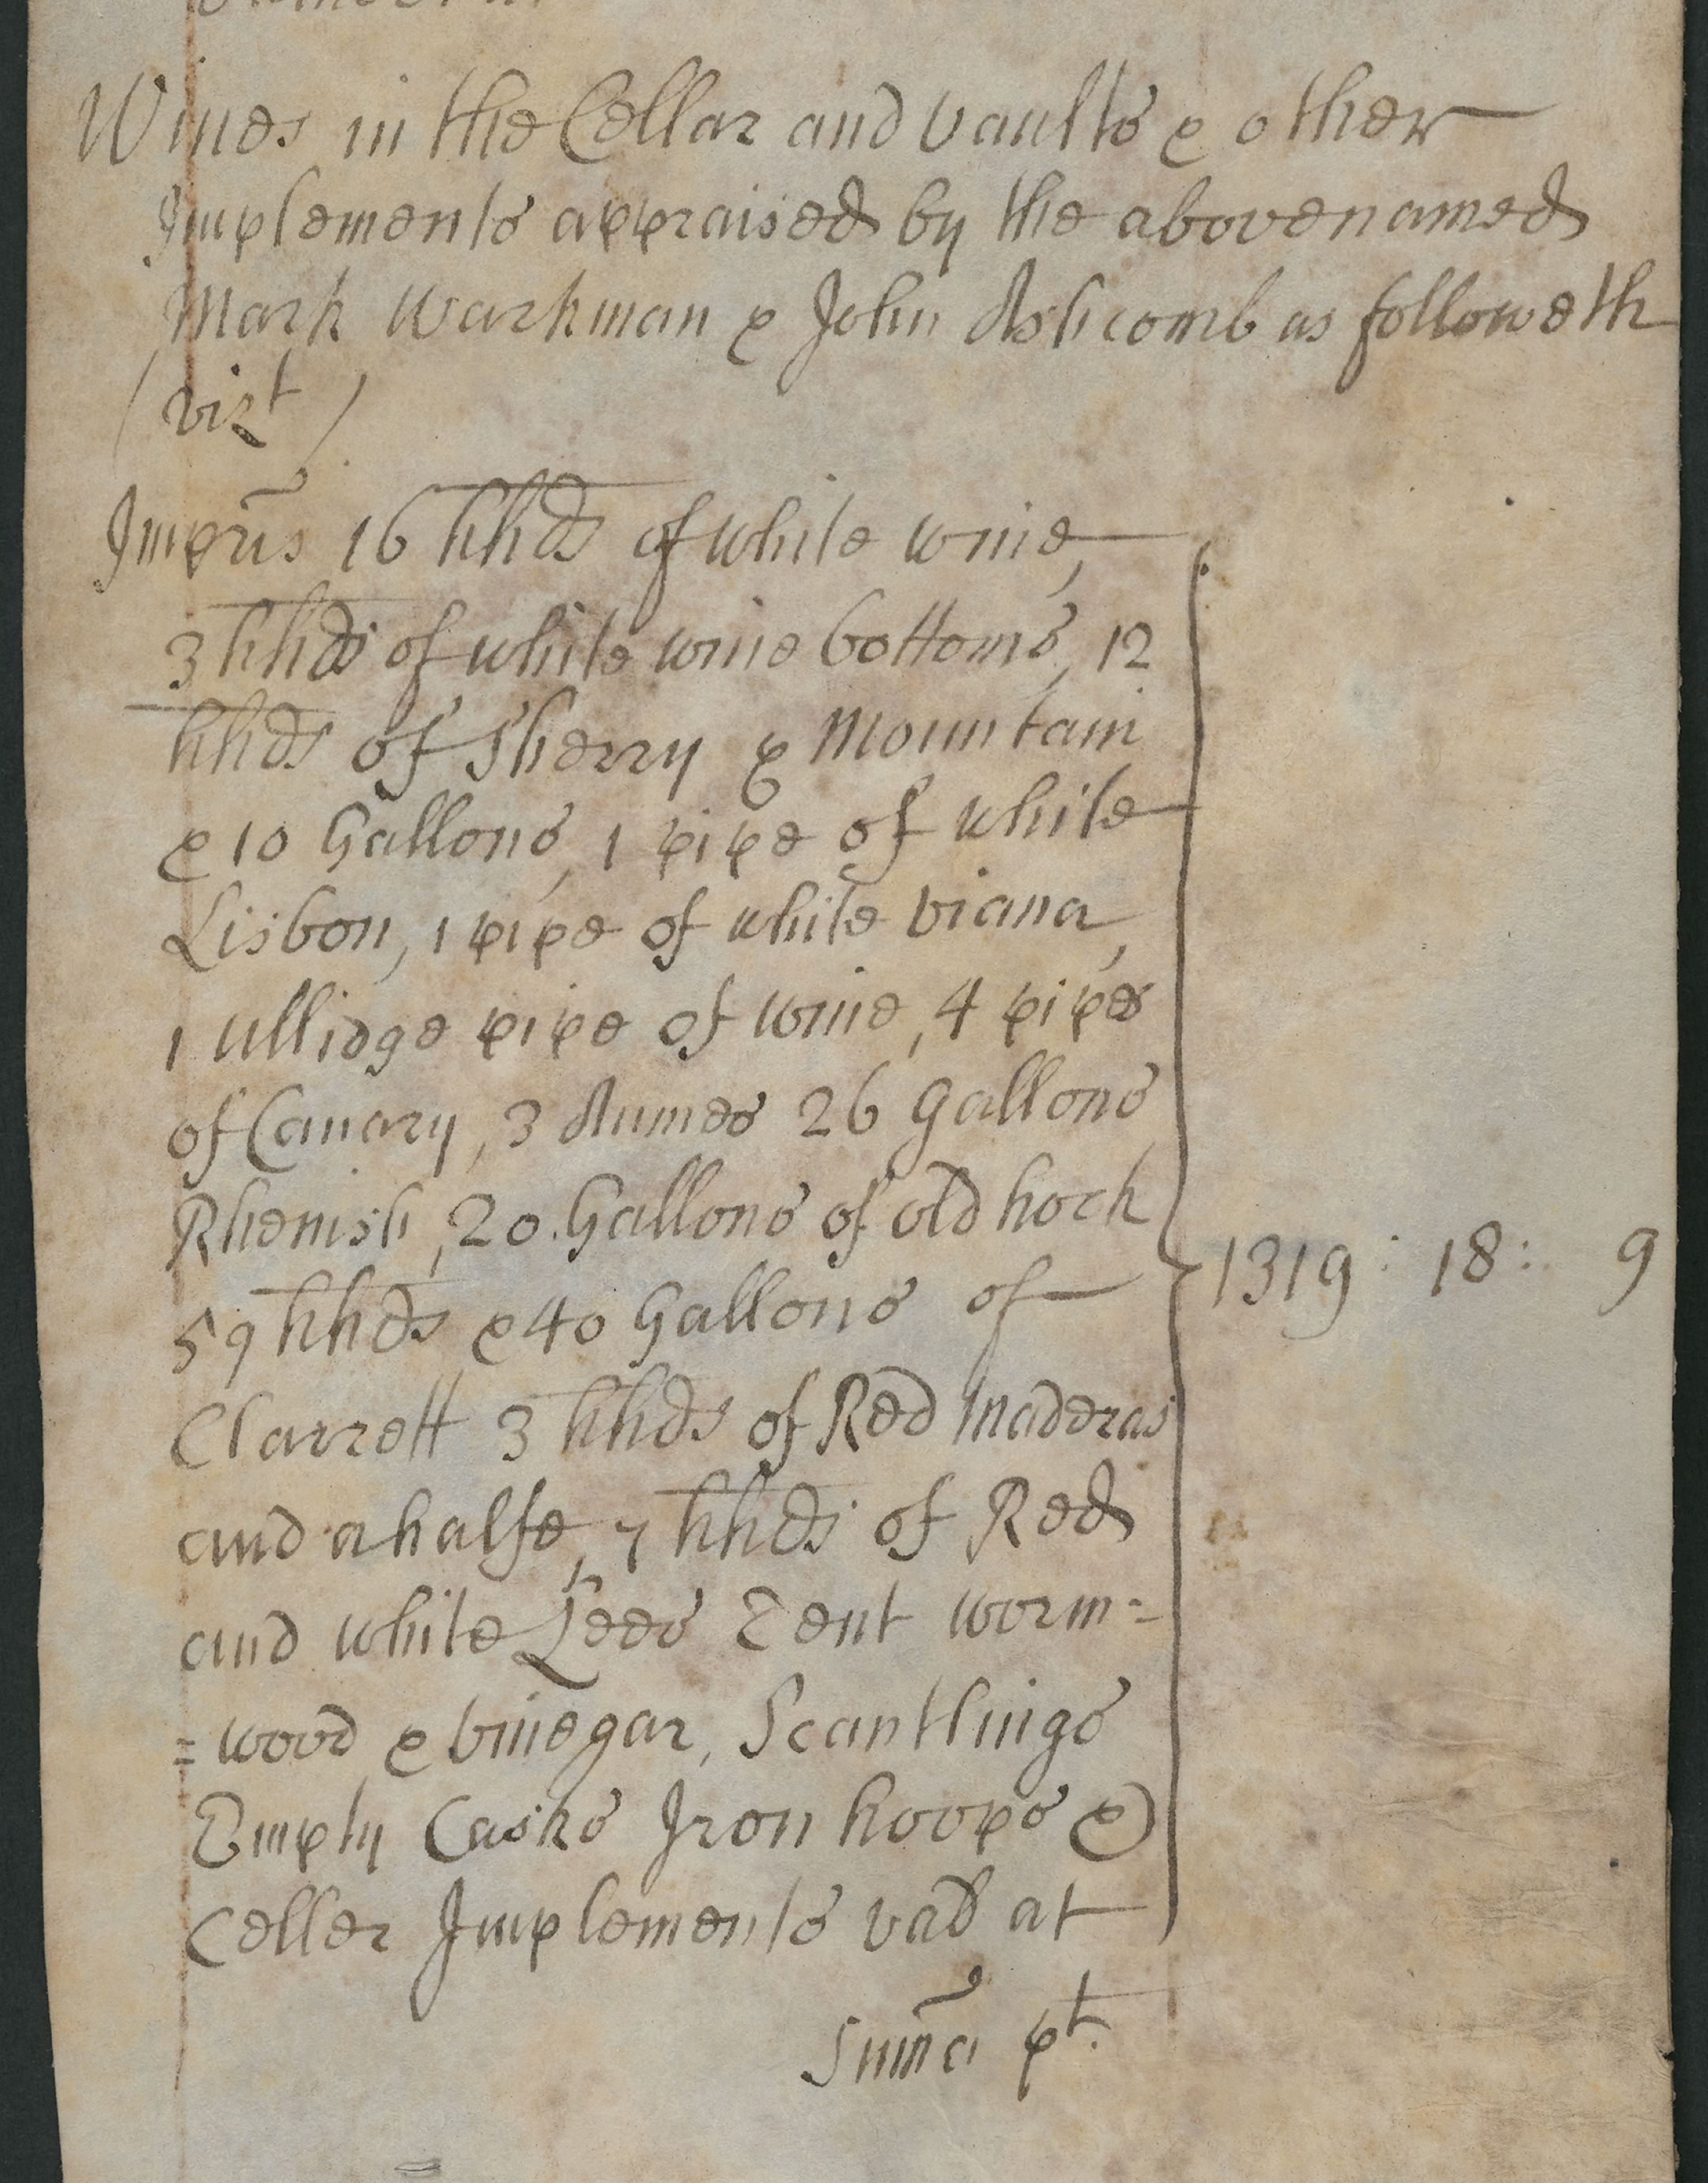 Wines in the Cellar and vaults & other
Implements appraised by the abovenamed
Mark Warkman & John Ashcomb as followeth
(vizt)
Imprīs 16 hhds of white wine,
3 hhds of white wine bottoms, 12
hhds of Sherry & Mountain
& 10 Gallons, 1 pipe of white
Lisbon, 1 pipe of white viana,
1 ullidge pipe of wine, 4 pipes
of Canary, 3 Aumes 26 Gallons
Rhenish, 20 Gallons of old hock
59 hhds & 40 Gallons of
1319 : 18 : 9
Clarrett 3 hhds of Red Maderas
and a halfe, 7 hhds of Red
and white Lees Tent worm=
=wood & vinegar, Scantlings
Empty Casks Iron hoops &
Celler Implements vad at
Sum̄a pt.